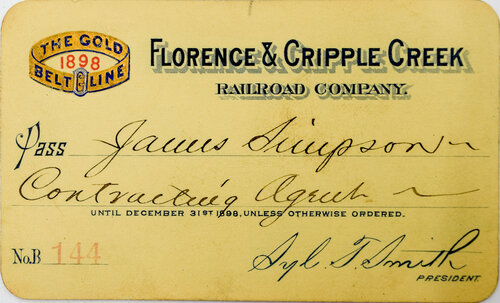 THE GOLD
1898
BELT LINE
FLORENCE & CRIPPLE CREEK
RAILROAD COMPANY.
Pass James Simpson
Contracting Agent
UNTIL DECEMBER 31ST 1898, UNLESS OTHERWISE ORDERED.
No. B 144
Syl. T. Smith
PRESIDENT.